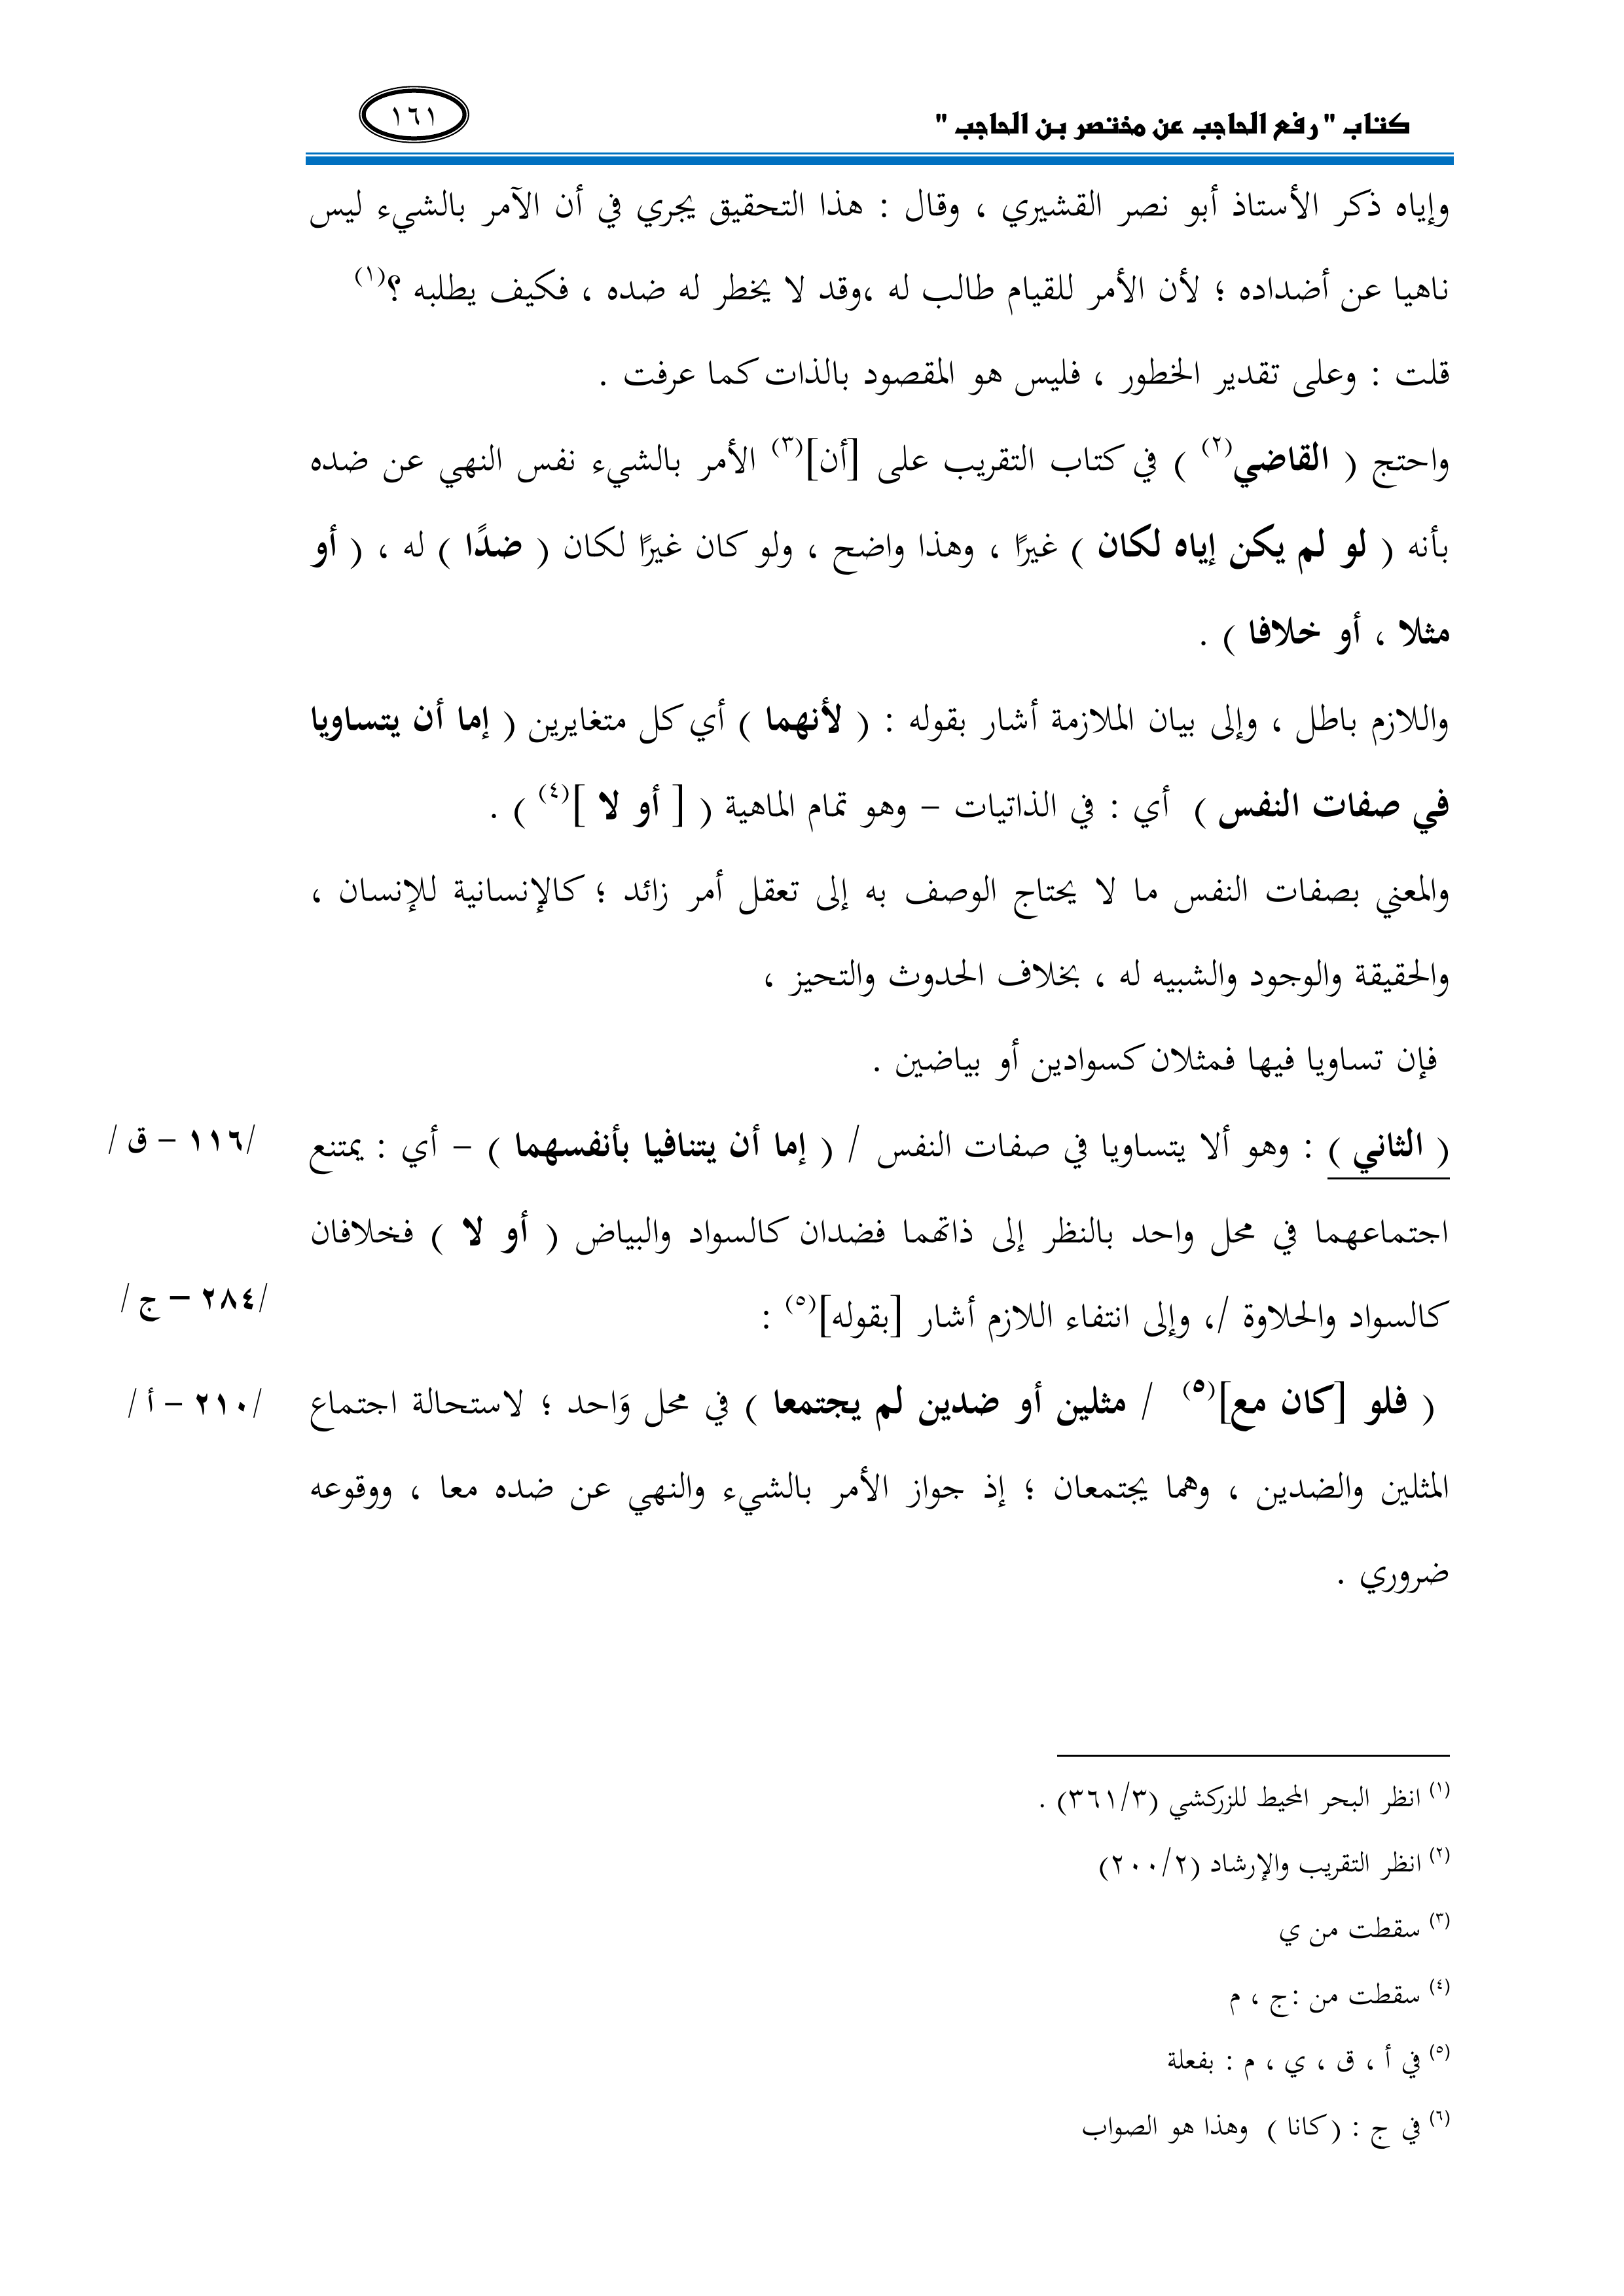 كتاب " رفع الحاجب عن مختصر بن الحاجب "
١٦١
وإياه ذكر الأستاذ أبو نصر القشيري ، وقال : هذا التحقيق يجري في أن الآمر بالشيء ليس
ناهيا عن أضداده ؛ لأن الأمر للقيام طالب له ،وقد لا يخطر له ضده ، فكيف يطلبه ؟(١)
قلت : وعلى تقدير الخطور ، فليس هو المقصود بالذات كما عرفت .
واحتج ( القاضي(٢) ) في كتاب التقريب على [أن](٣) الأمر بالشيء نفس النهي عن ضده
بأنه ( لو لم يكن إياه لكان ) غيرًا ، وهذا واضح ، ولو كان غيرًا لكان ( ضدًا ) له ، ( أو
مثلا ، أو خلافا ) .
واللازم باطل ، وإلى بيان الملازمة أشار بقوله : ( لأنهما ) أي كل متغايرين ( إما أن يتساويا
في صفات النفس ) أي : في الذاتيات – وهو تمام الماهية ( [ أو لا ](٤) ) .
والمعني بصفات النفس ما لا يحتاج الوصف به إلى تعقل أمر زائد ؛ كالإنسانية للإنسان ،
والحقيقة والوجود والشبيه له ، بخلاف الحدوث والتحيز ،
فإن تساويا فيها فمثلان كسوادين أو بياضين .
( الثاني ) : وهو ألا يتساويا في صفات النفس / ( إما أن يتنافيا بأنفسهما ) – أي : يمتنع
/١١٦ – ق /
اجتماعهما في محل واحد بالنظر إلى ذاتهما فضدان كالسواد والبياض ( أو لا ) فخلافان
كالسواد والحلاوة /، وإلى انتفاء اللازم أشار [بقوله](٥) :
/٢٨٤ – ج /
( فلو [كان مع](٥) / مثلين أو ضدين لم يجتمعا ) في محل وَاحد ؛ لاستحالة اجتماع
/٢١٠ – أ /
المثلين والضدين ، وهما يجتمعان ؛ إذ جواز الأمر بالشيء والنهي عن ضده معا ، ووقوعه
ضروري .
(١) انظر البحر المحيط للزركشي (٣٦١/٣) .
(٢) انظر التقريب والإرشاد (٢٠٠/٢)
(٣) سقطت من ي
(٤) سقطت من :ج ، م
(٥) في أ ، ق ، ي ، م : بفعلة
(٦) في ج : ( كانا ) وهذا هو الصواب